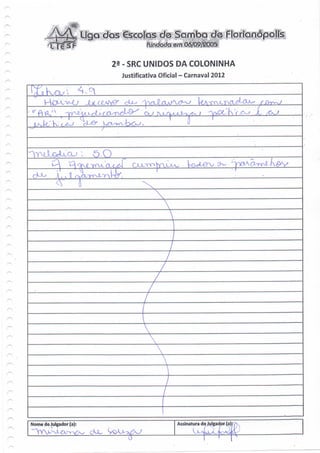 Liga das Escolas de Samba de Florianópolis
fundada em 06/09/2005
LIESF
2ª - SRC UNIDOS DA COLONINHA
Justificativa Oficial – Carnaval 2012
Letra: 4.9
Houve excesso de palavras terminadas com
"AR", prejudicando a riqueza poética e a
estética do samba.
Melodia: 5.0
A Agremiação cumpriu todos os parâmetros
de julgamento.
Nome do Julgador (a):
Assinatura do Julgador (a):
de Souza